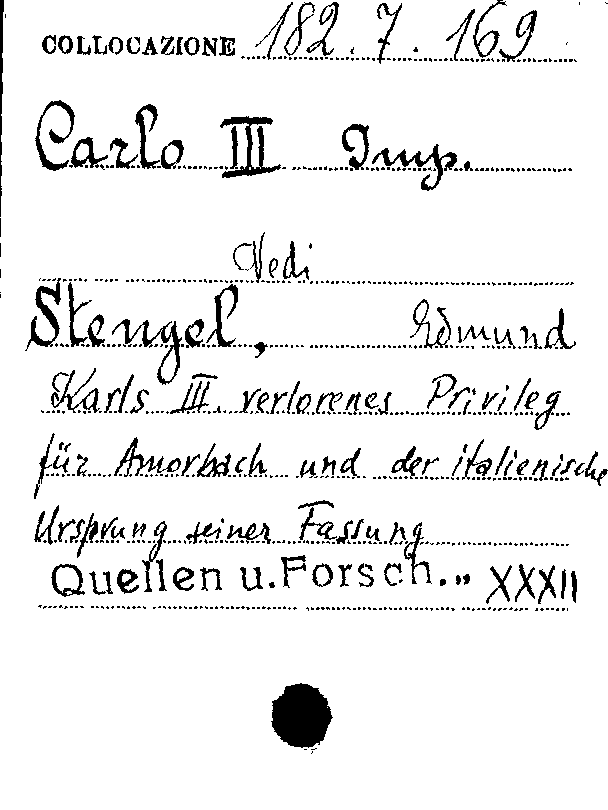 COLLOCAZIONE 182.7.169
Carlo III Imp.
Vedi
Stengel, Edmund
Karls III. verlorenes Privileg
für Amorbach und der italienische
Ursprung seiner Fassung
Quellen u. Forsch. „ XXXII